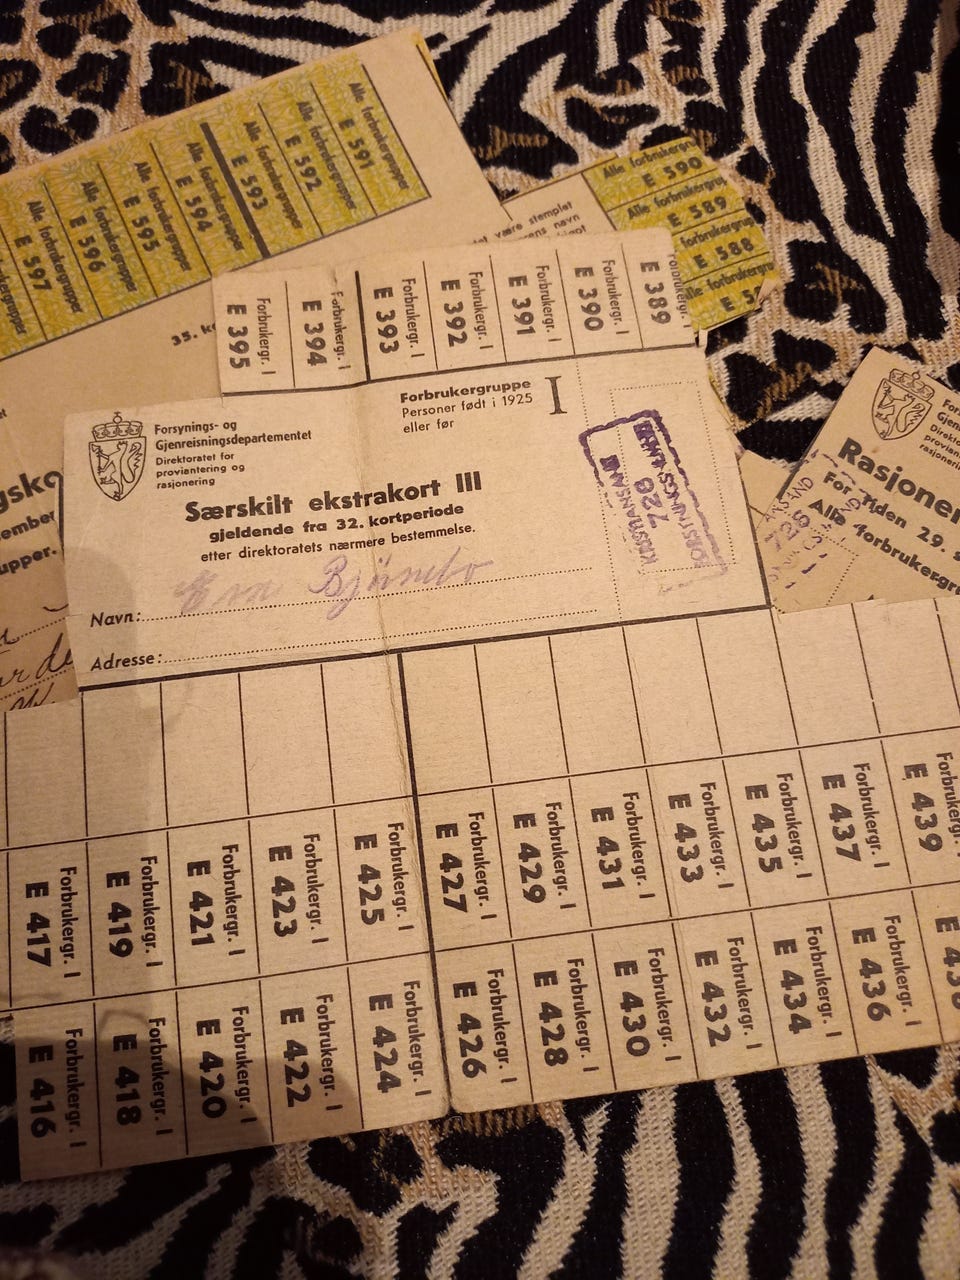 Alle forbrukergrupper
E 591
Alle forbrukergrupper
E 592
Alle forbrukergrupper
E 593
Alle forbrukergrupper
E 594
Alle forbrukergrupper
E 595
Alle forbrukergrupper
E 596
Alle forbrukergrupper
E 597
Alle
E 590
Alle
E 589
E 588
være stemplet
navn
35.
Forbrukergr. I
E 395
Forbrukergr. I
E 394
Forbrukergr. I
E 393
Forbrukergr. I
E 392
Forbrukergr. I
E 391
Forbrukergr. I
E 390
Forbrukergr. I
E 389
Forsynings- og
Gjenreisningsdepartementet
Direktoratet for
proviantering og
rasjonering
Forbrukergruppe I
Personer født i 1925
eller før
Særskilt ekstrakort III
gjeldende fra 32. kortperiode
etter direktoratets nærmere bestemmelse.
Navn:
Adresse:
KRISTIANSAND
728
For tiden 29.
Alle
Forbrukergr. I
E 417
Forbrukergr. I
E 419
Forbrukergr. I
E 421
Forbrukergr. I
E 423
Forbrukergr. I
E 425
Forbrukergr. I
E 427
Forbrukergr. I
E 429
Forbrukergr. I
E 431
Forbrukergr. I
E 433
Forbrukergr. I
E 435
Forbrukergr. I
E 437
Forbrukergr.
E 439
Forbrukergr. I
E 416
Forbrukergr. I
E 418
Forbrukergr. I
E 420
Forbrukergr. I
E 422
Forbrukergr. I
E 424
Forbrukergr. I
E 426
Forbrukergr. I
E 428
Forbrukergr. I
E 430
Forbrukergr. I
E 432
Forbrukergr. I
E 434
Forbrukergr. I
E 436